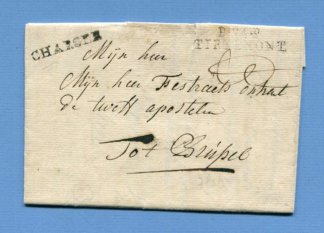 CHARGÉ
TIRLEMONT
Mijn heer
Mijn heer Festraets
de apostelen
Tot Brussel